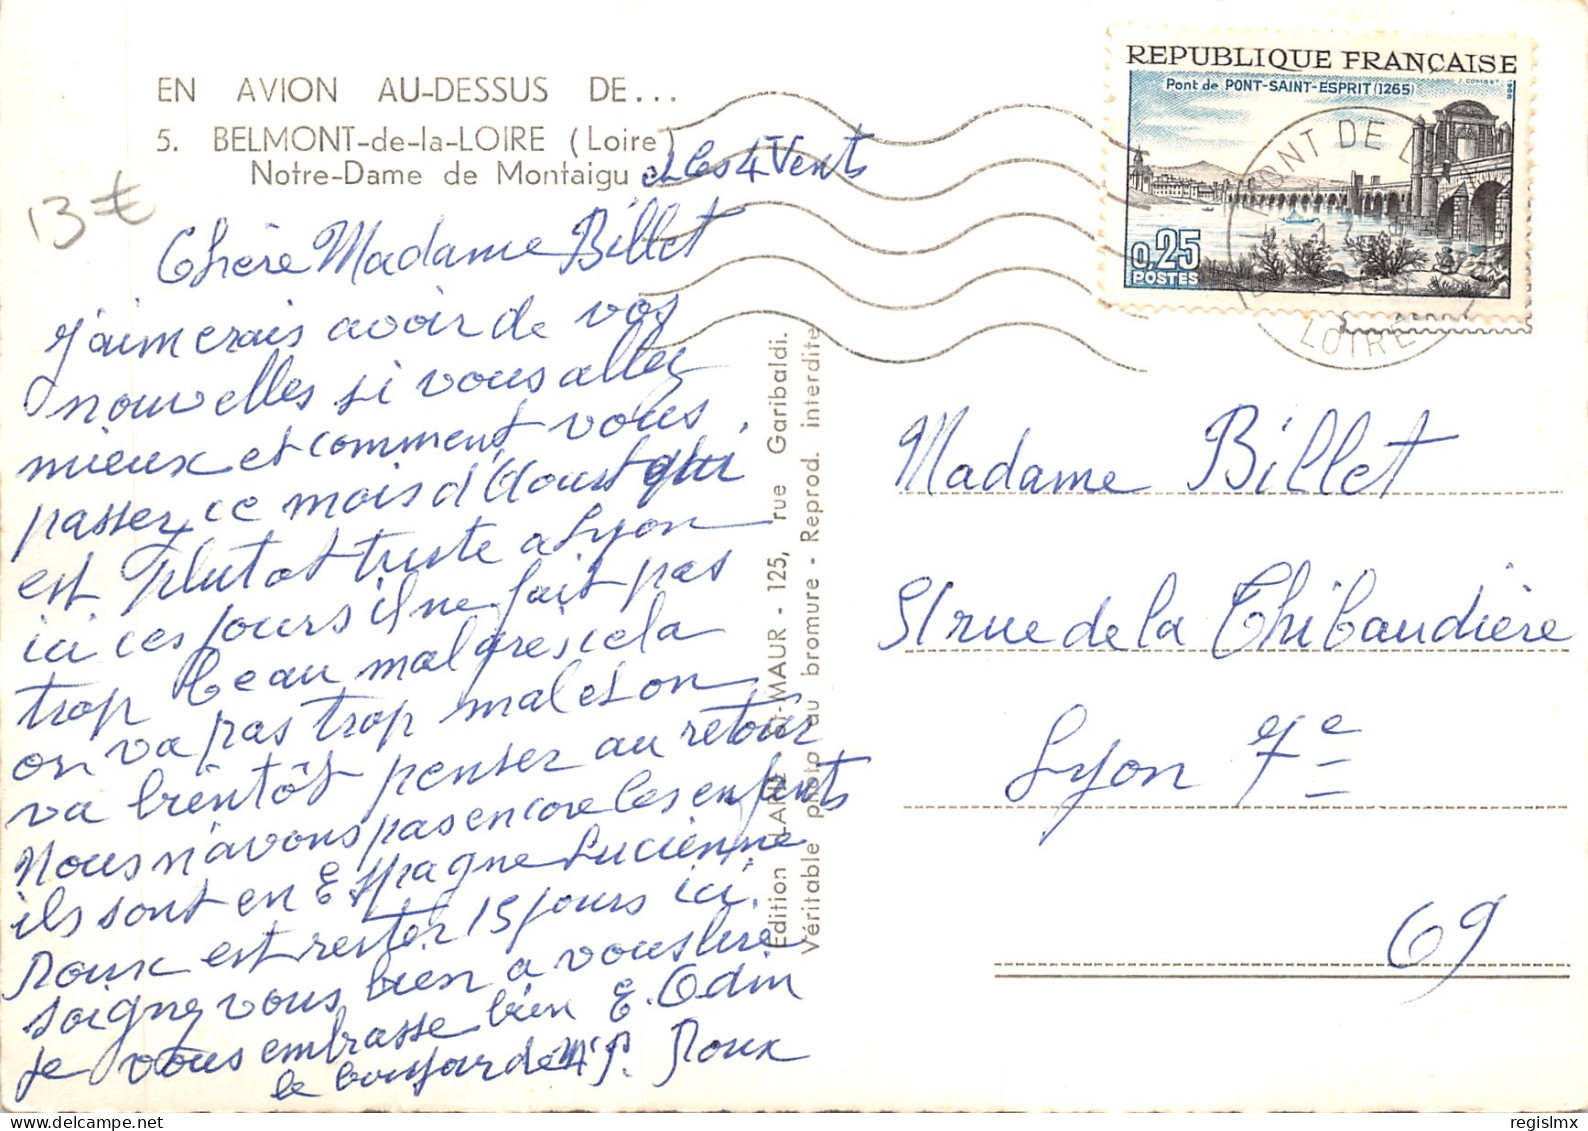 EN AVION AU-DESSUS DE...
5. BELMONT-de-la-LOIRE (Loire)
Notre-Dame de Montaigu et les 4 Vents
13 €
Chère Madame Billet
J'aimerais avoir de vos
nouvelles si vous allez
mieux et comment vous
passez ce mois d'Aoust qui
est plutot triste a Lyon
ici ces jours il ne fait pas
trop beau malgres cela
on va pas trop mal et on
va bientôt penser au retour
Nous n'avons pas encore les enfants
ils sont en Espagne Lucienne
Roux est rester 15 jours ici.
soignez vous bien a vous lire
je vous embrasse bien E. Odin
le bonjour de Mr P. Roux
Edition LAPIE St-MAUR - 125, rue Garibaldi.
Véritable photo au bromure - Reprod. interdite
REPUBLIQUE FRANÇAISE
J. COMBET
Pont de PONT-SAINT-ESPRIT (1265)
0,25
POSTES
LOIRE
Madame Billet
51 rue de la Thibaudière
Lyon 7e
69
regislmx